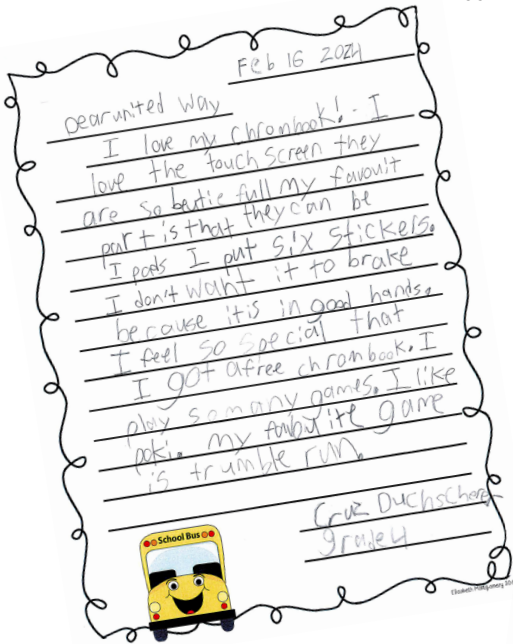 Feb 16 2024
Dear united Way
I love my chrombook! - I
love the touch screen they
are so beutie full my favouit
part is that they can be
I pads I put six stickers.
I don't want it to brake
because it is in good hands.
I feel so special that
I got a free chrombook. I
play so many games. I like
poki. my favourite game
is trumble run.
Cruz Duchscherer
grade 4
School Bus
Elizabeth Montgomery